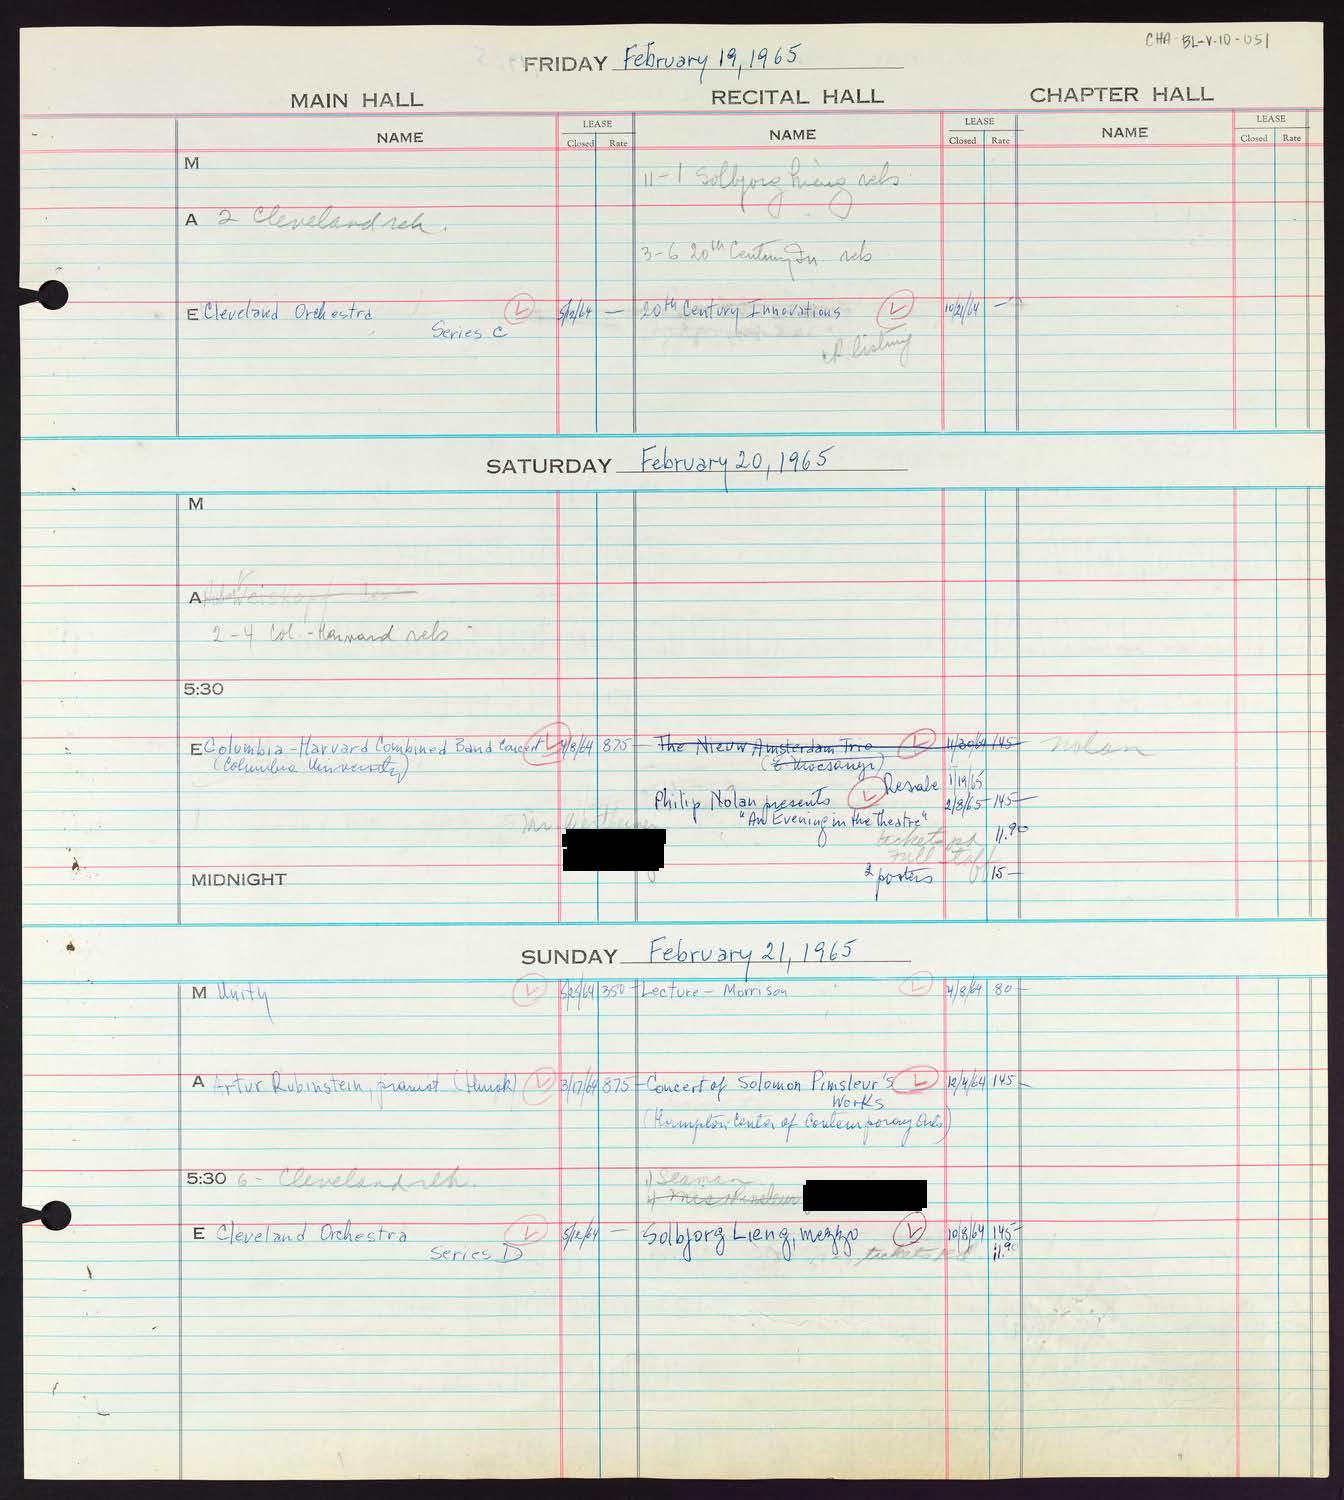 CHA-BL-V.10-051
FRIDAY February 19, 1965
MAIN HALL RECITAL HALL CHAPTER HALL
NAME LEASE Closed Rate NAME LEASE Closed Rate NAME LEASE Closed Rate
M 11-1 Solbjorg Lieng rels
A 2 Cleveland reh.
3-6 20th Century In rels
E Cleveland Orchestra L 5/12/64 — 20th Century Innovations L 10/21/64 —
Series C
listing
SATURDAY February 20, 1965
M
A Weiskopf
2-4 Col.-Harvard rels
5:30
E Columbia-Harvard Combined Band Concert L 4/8/64 875 The Nieuw Amsterdam Trio L 11/30/64 145 nolan
(Columbia University) (E Mocsanyi)
Resale 1/19/65
Philip Nolan presents L 2/8/65 145—
"An Evening in the Theatre"
tickets pd 11.90
Full Staff
MIDNIGHT 2 posters 15—
SUNDAY February 21, 1965
M Unity L 5/25/64 350 Lecture - Morrison L 4/8/64 80—
A Artur Rubinstein, pianist (Hurok) L 3/17/64 875 Concert of Solomon Pimsleur's L 12/4/64 145—
Works
(Hampton Center of Contemporary Arts)
5:30 6- Cleveland reh. 1) Seaman
E Cleveland Orchestra L 5/12/64 — Solbjorg Lieng, mezzo L 10/8/64 145—
Series D tickets pd 11.90